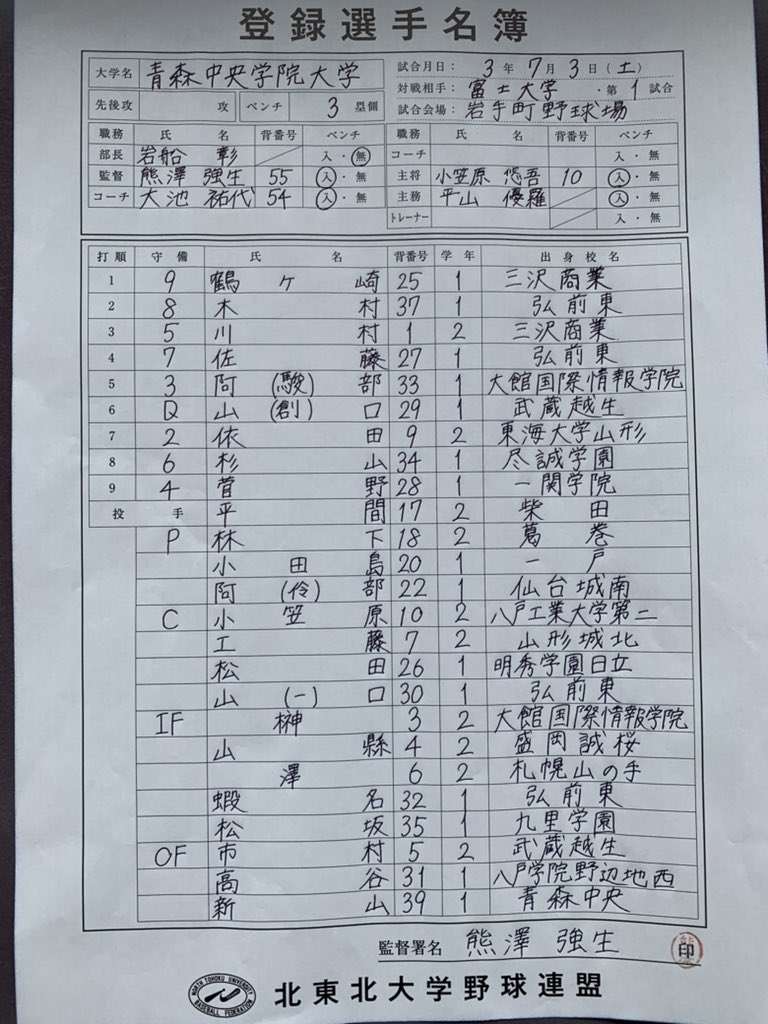 登録選手名簿
大学名 青森中央学院大学 試合月日： 3年 7月 3日（土）
対戦相手： 富士大学 ・第 1 試合
先後攻 攻 ベンチ 3 塁側 試合会場： 岩手町野球場
職務 氏 名 背番号 ベンチ 職務 氏 名 背番号 ベンチ
部長 岩船 彰 入・無 コーチ 入・無
監督 熊澤 強生 55 入・無 主将 小笠原 悠吾 10 入・無
コーチ 大池 祐代 54 入・無 主務 平山 優羅 入・無
トレーナー 入・無
打順 守備 氏 名 背番号 学年 出身校名
1 9 鶴ヶ崎 25 1 三沢商業
2 8 木村 37 1 弘前東
3 5 川村 1 2 三沢商業
4 7 佐藤 27 1 弘前東
5 3 阿(駿)部 33 1 大館国際情報学院
6 D 山(創)口 29 1 武蔵越生
7 2 依田 9 2 東海大学山形
8 6 杉山 34 1 尽誠学園
9 4 菅野 28 1 一関学院
投手 平間 17 2 柴田
P 林下 18 2 葛巻
小田島 20 1 一戸
阿(伶)部 22 1 仙台城南
C 小笠原 10 2 八戸工業大学第二
工藤 7 2 山形城北
松田 26 1 明秀学園日立
山(一)口 30 1 弘前東
IF 榊 3 2 大館国際情報学院
山縣 4 2 盛岡誠桜
澤 6 2 札幌山の手
蝦名 32 1 弘前東
松坂 35 1 九里学園
OF 市村 5 2 武蔵越生
高谷 31 1 八戸学院野辺地西
新山 39 1 青森中央
監督署名 熊澤 強生 印
NORTH TOHOKU UNIVERSITY BASEBALL FEDERATION
北東北大学野球連盟